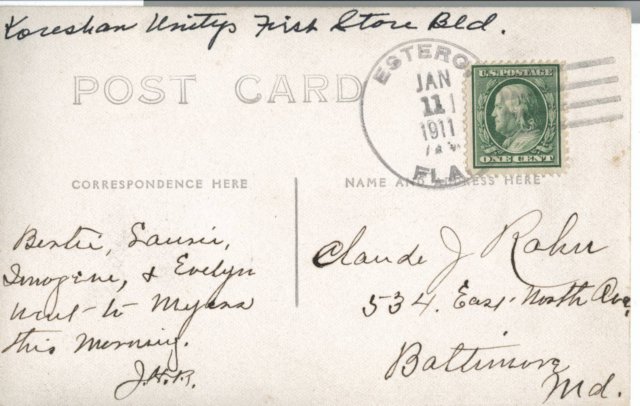 Koreshan Unitys First Store Bld.
POST CARD
ESTERO
JAN
11
1911
FLA
U.S. POSTAGE
ONE CENT
CORRESPONDENCE HERE
NAME AND ADDRESS HERE
Bertie, Laurie,
Imogene, & Evelyn
went to Myers
this morning.
J.H.R.
Claude J Rahn
534. East North Ave,
Baltimore
Md.